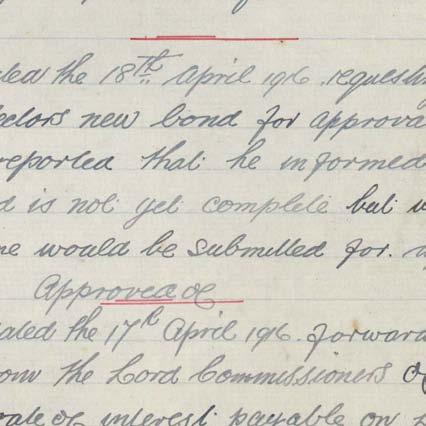 ated the 18th April 1916. requesti
lectors new bond for approva
reported that he informed
d is not yet complete but
me would be submitted for
Approved
ated the 17th April 1916. forwar
om the Lord Commissioners of
rate of interest payable on